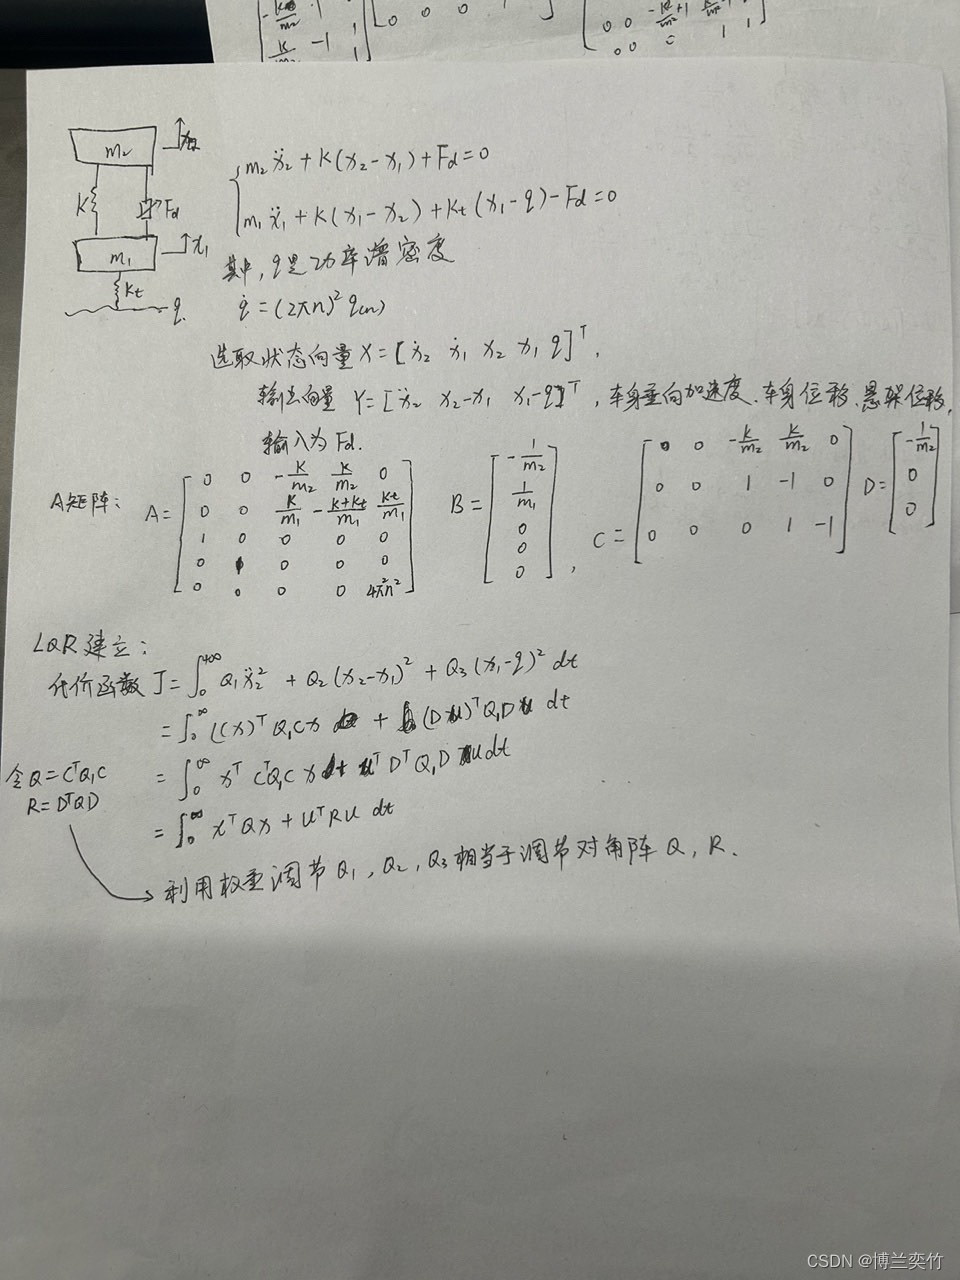 m₂ẍ₂ + K(x₂-x₁) + Fd = 0
m₁ẍ₁ + K(x₁-x₂) + Kt(x₁-q) - Fd = 0
m₂
K
Fd
m₁
x₁
Kt
q
其中, q是功率谱密度
q̇ = (2πn)² q(n)
选取状态向量 X = [ẋ₂ ẋ₁ x₂ x₁ q]ᵀ,
输出向量 Y = [ẍ₂ x₂-x₁ x₁-q]ᵀ, 车身垂向加速度、车身位移、悬架位移,
输入为 Fd.
A矩阵: A = [0 0 -K/m₂ K/m₂ 0
0 0 K/m₁ -(K+Kt)/m₁ Kt/m₁
1 0 0 0 0
0 1 0 0 0
0 0 0 0 4π²n²]
B = [-1/m₂
1/m₁
0
0
0],
C = [0 0 -K/m₂ K/m₂ 0
0 0 1 -1 0
0 0 0 1 -1]
D = [-1/m₂
0
0]
LQR 建立:
代价函数 J = ∫₀^{+∞} Q₁ẍ₂² + Q₂(x₂-x₁)² + Q₃(x₁-q)² dt
= ∫₀^∞ (Cx)ᵀQ₁Cx + (Du)ᵀQ₁Du dt
令Q = CᵀQ₁C
R = DᵀQD
= ∫₀^∞ xᵀCᵀQ₁Cx + uᵀDᵀQ₁Du dt
= ∫₀^∞ xᵀQx + uᵀRu dt
利用权重调节 Q₁, Q₂, Q₃相当于调节对角阵 Q, R.
CSDN @博兰奕竹